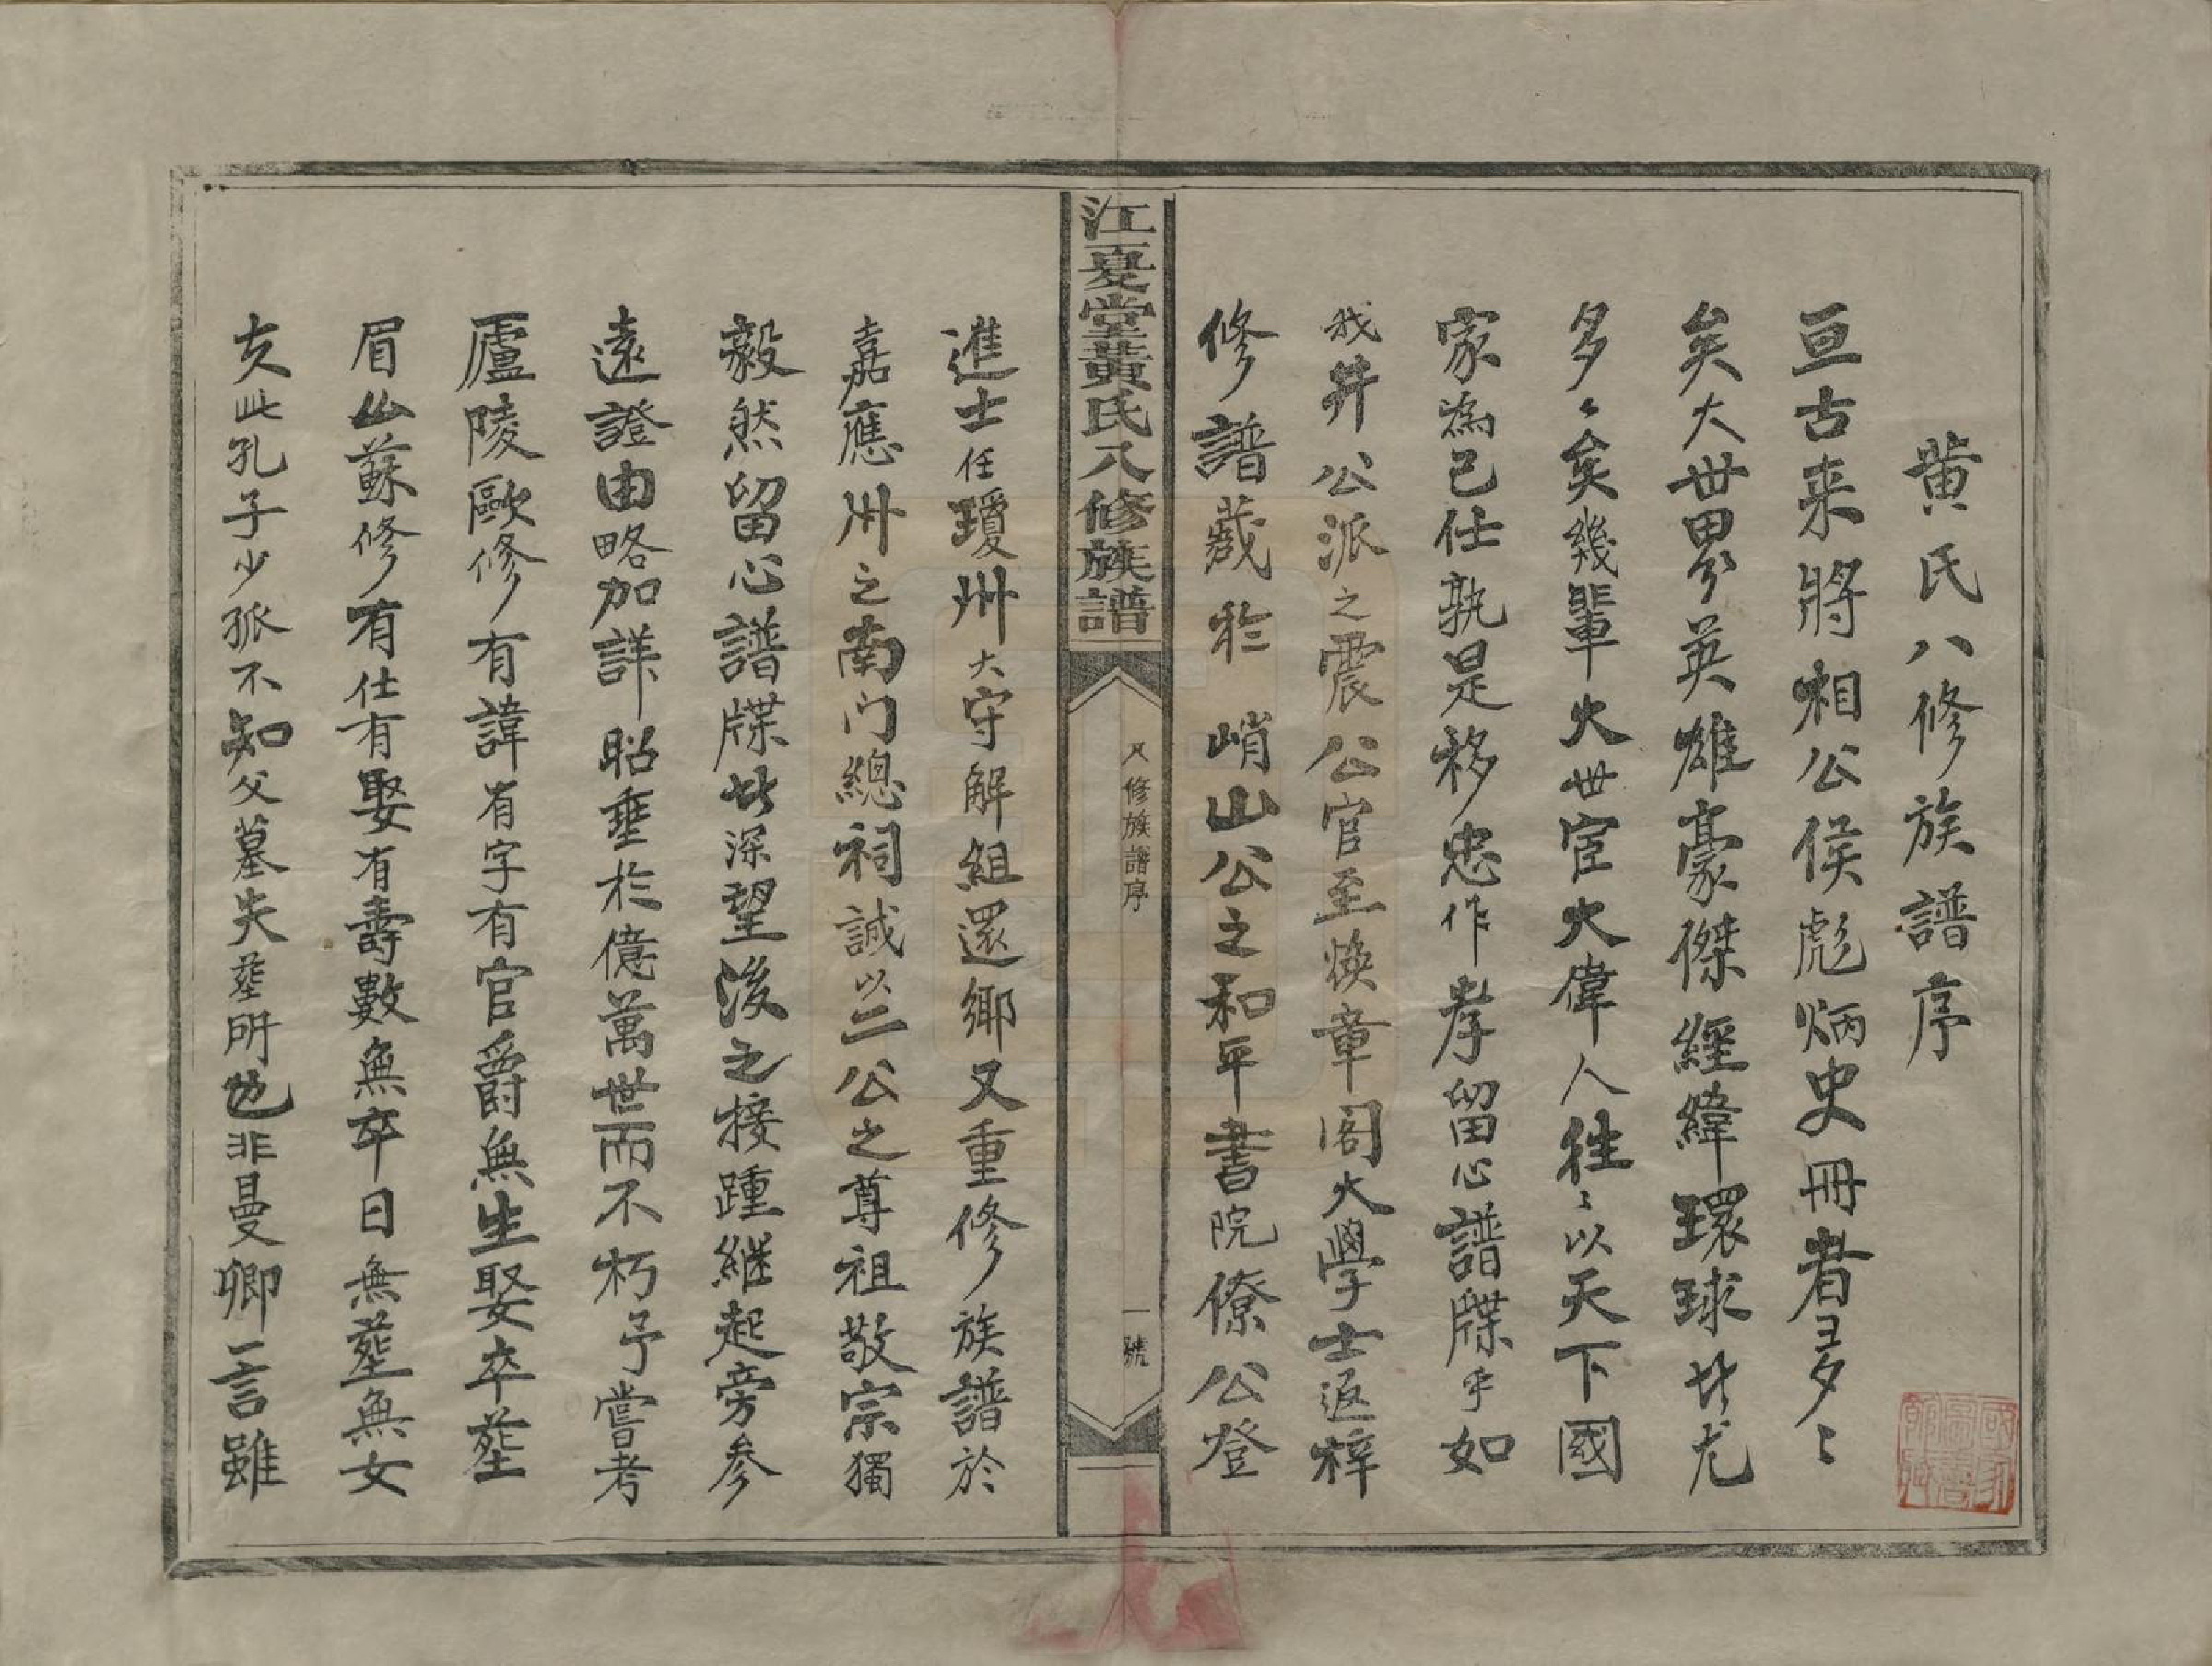 黄氏八修族譜序
亘古来將相公侯彪炳史冊者多〻
矣大世界分英雄豪傑經緯環球者尤
多〻矣幾輩大世宦大偉人徃〻以天下國
家為己仕孰是移忠作孝留心譜牒乎如
我井公派之震公官至煥章阁大學士返梓
修譜藏於峭山公之和平書院僚公登
江夏堂黄氏八修族譜
八修族譜序
一號
進士任瓊州大守解組還鄉又重修族譜於
嘉應州之南门總祠誠以二公之尊祖敬宗獨
毅然留心譜牒者深望後之接踵継起旁参
遠證由略加詳昭垂於億萬世而不朽予嘗考
廬陵歐修有諱有字有官爵無生娶卒塟
眉山蘇修有仕有娶有壽數無卒日無塟無女
友此孔子少孤不知父墓失塟所也非曼卿一言雖